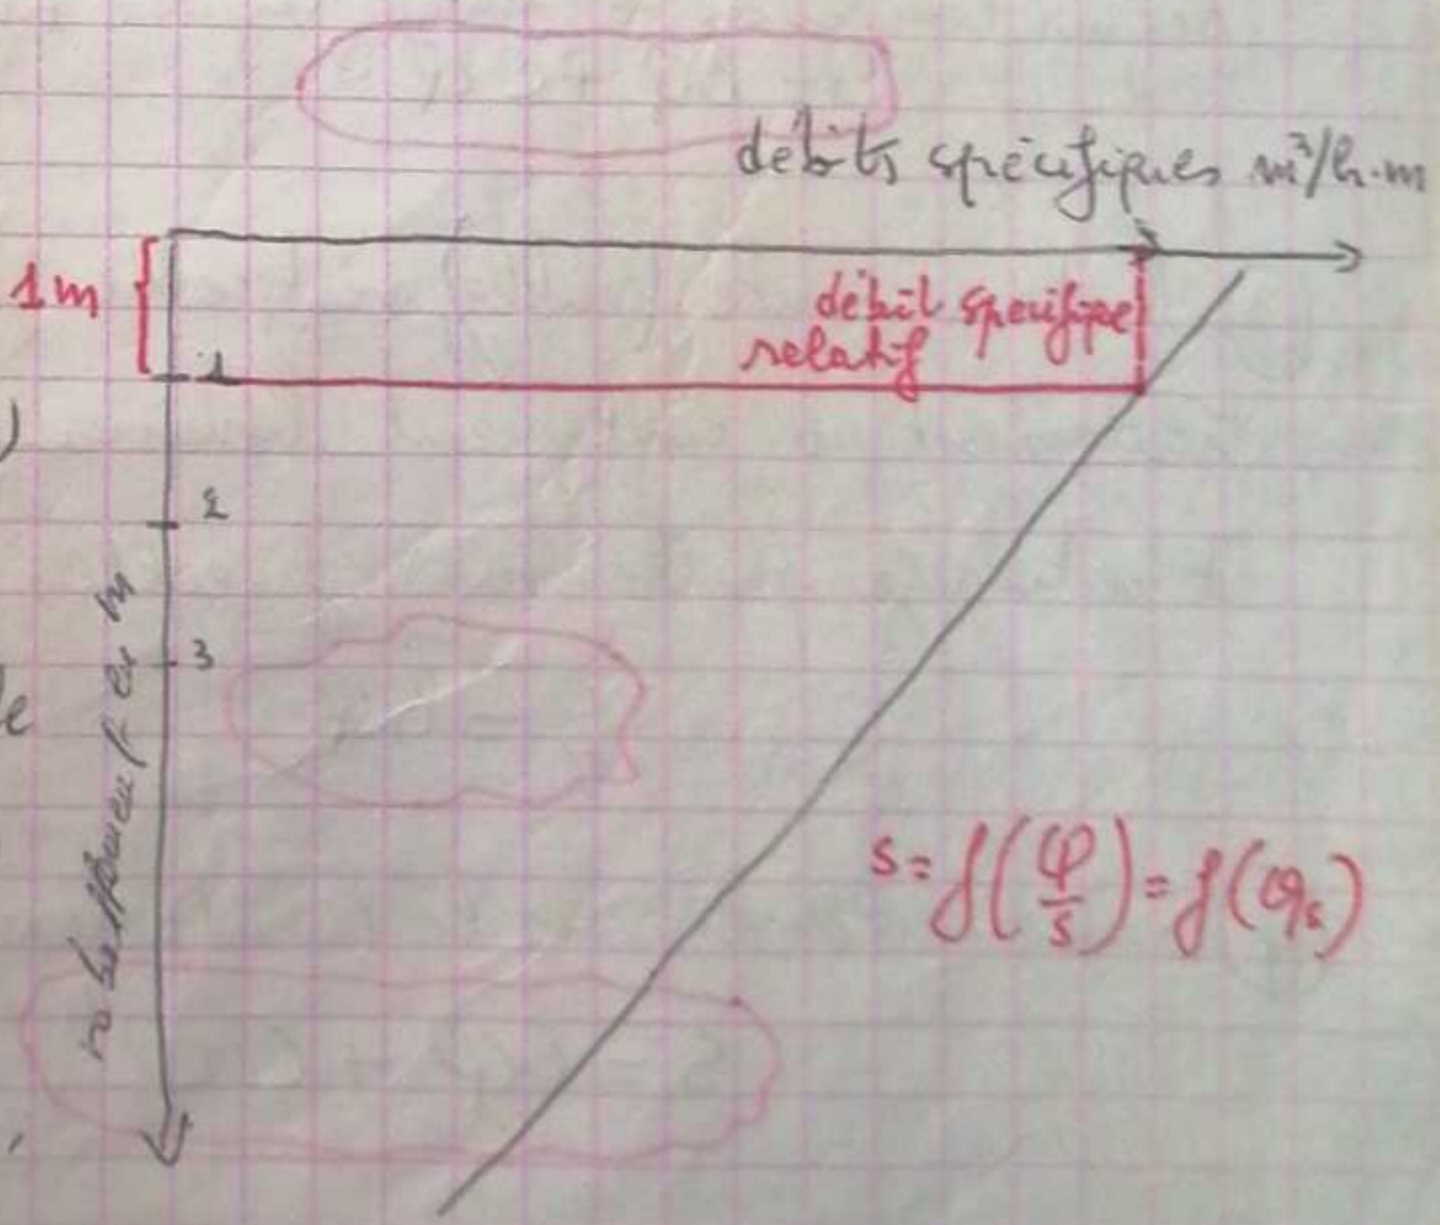 débits spécifiques m³/h.m
1m
débit specifique
relatif
1
2
3
rabattement en m
)
e
s = f(Q/s) = f(Qs)